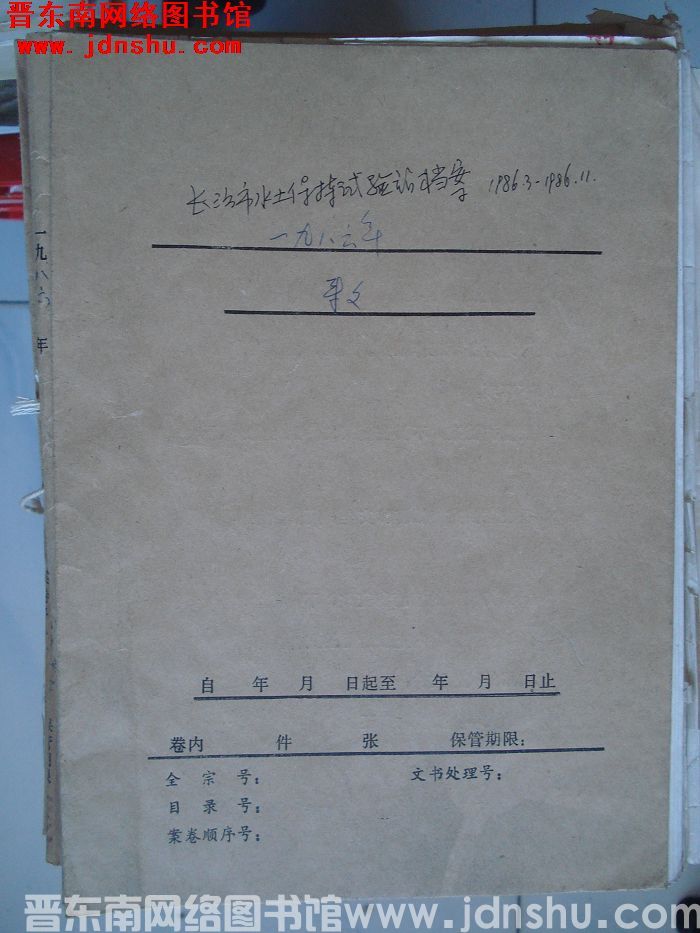 晋东南网络图书馆
www.jdnshu.com
长治市水土保持试验站档案 1986.3-1986.11.
一九八六年
来文
一九八六年
自 年 月 日起至 年 月 日止
卷内 件 张 保管期限：
全宗号： 文书处理号：
目录号：
案卷顺序号：
晋东南网络图书馆www.jdnshu.com